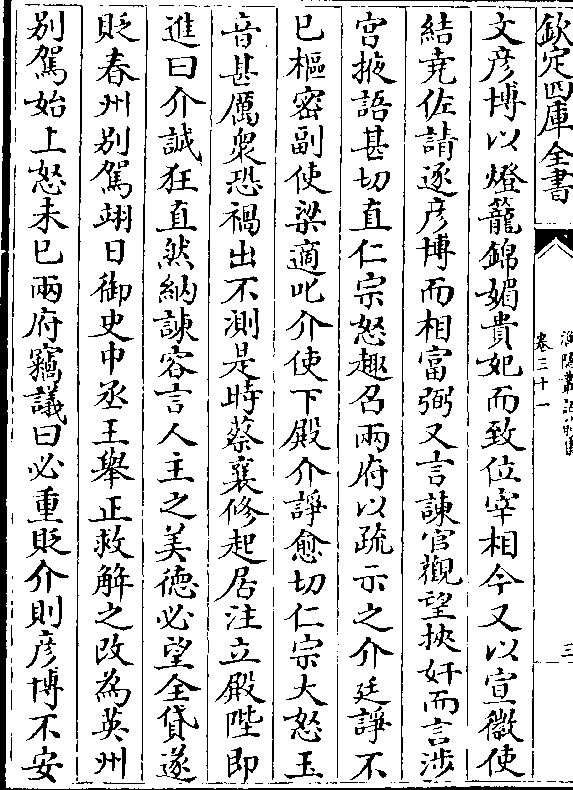 欽定四庫全書
漁隱叢話後集
卷三十一
三
文彦博以燈籠錦媚貴妃而致位宰相今又以宣徽使
結堯佐請逐彦博而相富弼又言諫官觀望挾奸而言涉
宫掖語甚切直仁宗怒趣召兩府以疏示之介廷諍不
已樞密副使梁適叱介使下殿介諍愈切仁宗大怒玉
音甚厲衆恐禍出不測是時蔡襄修起居注立殿陛即
進曰介誠狂直然納諫容言人主之美徳必望全貸遂
貶春州别駕翊日御史中丞王舉正救解之改為英州
别駕始上怒未已兩府竊議曰必重貶介則彦博不安